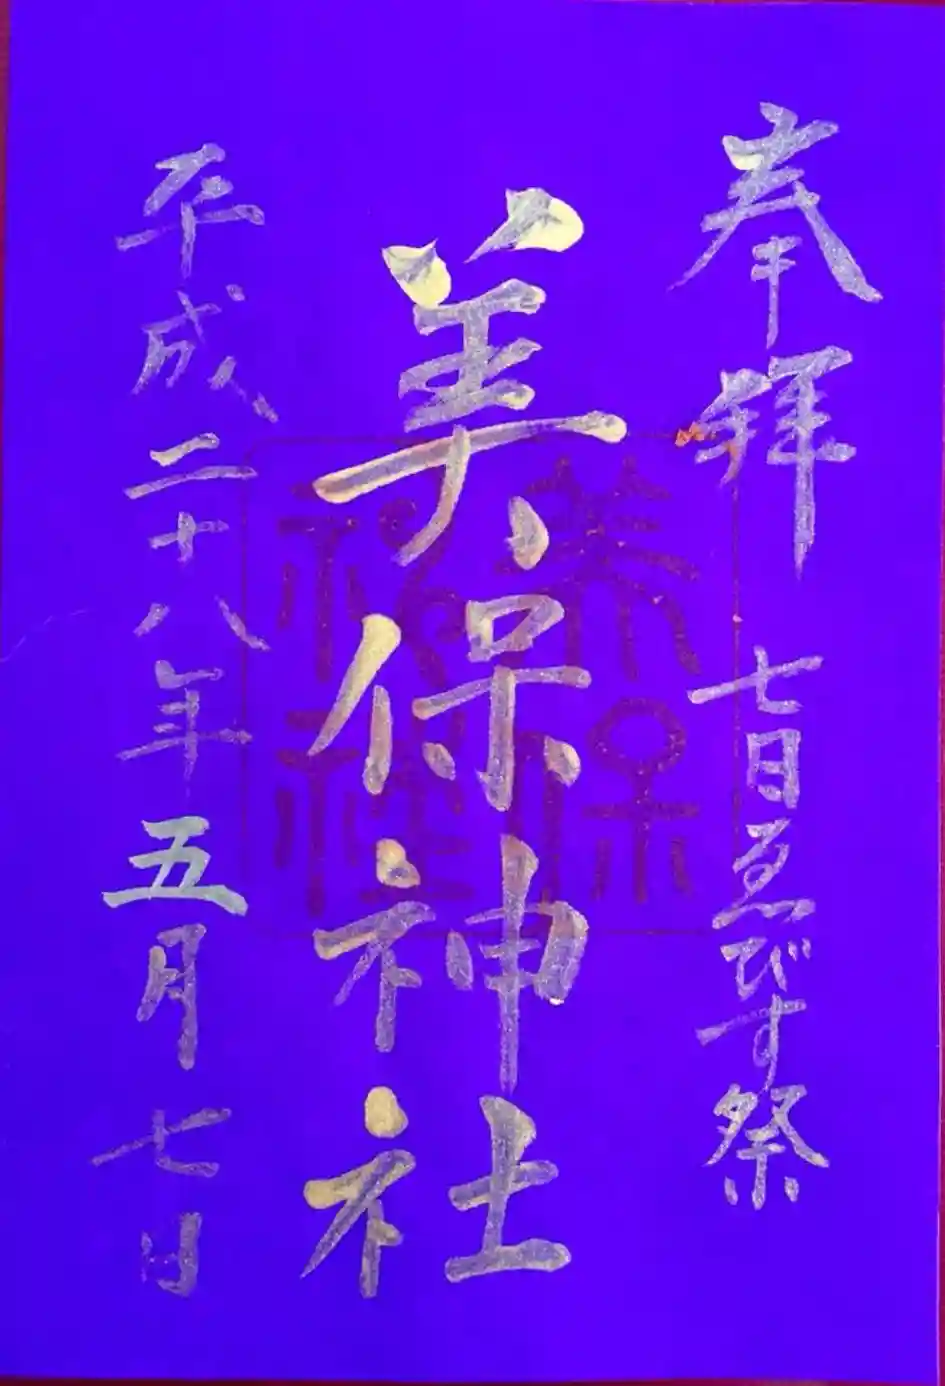 奉拝　七日ゑびす祭
美保神社
美保神社
平成二十八年五月七日